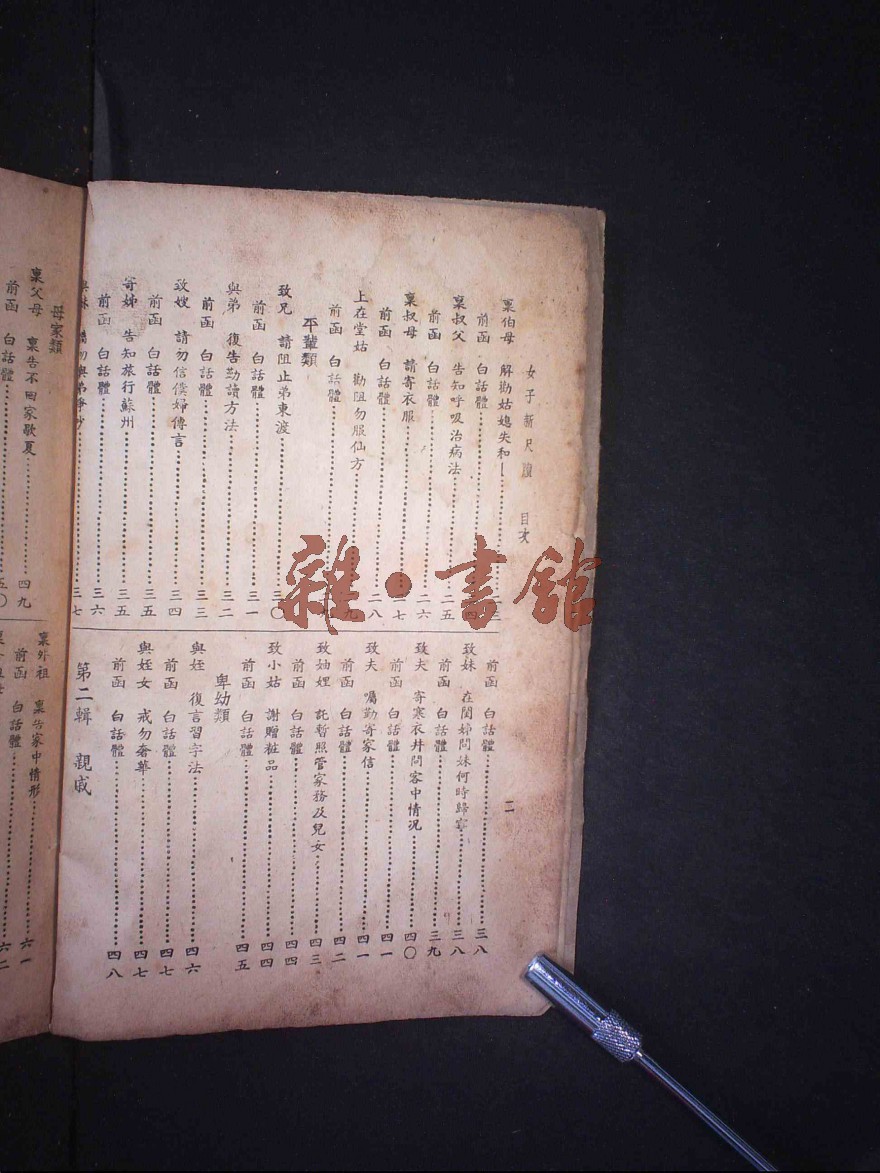 女子新尺牘 目次
二
稟伯母 解勸姑媳失和
前函 白話體
稟叔父 告知呼吸治病法……二五
前函 白話體……二六
稟叔母 請寄衣服……二七
前函 白話體……二八
上在堂姑 勸阻勿服仙方
前函 白話體
平輩類
致兄 請阻止弟東渡……三〇
前函 白話體……三一
與弟 復告勤讀方法……三二
前函 白話體……三三
致嫂 請勿信僕婦傳言……三四
前函 白話體……三五
寄姊 告知旅行蘇州……三五
前函 白話體……三六
與妹 囑勿與弟爭吵……三七
前函 白話體……三八
致妹 在閨姊問妹何時歸寧……三八
前函 白話體……三九
致夫 寄寒衣幷問客中情况……四〇
前函 白話體……四一
致夫 囑勤寄家信……四一
前函 白話體……四二
致妯娌 託暫照管家務及兒女……四三
前函 白話體……四四
致小姑 謝贈粧品……四四
前函 白話體……四五
卑幼類
與姪 復言習字法……四六
前函 白話體……四七
與姪女 戒勿奢華……四七
前函 白話體……四八
第二輯 親戚
母家類
稟父母 稟告不回家歇夏……四九
前函 白話體……五〇
稟外祖 稟告家中情形……六一
前函 白話體……六二
雜·書館